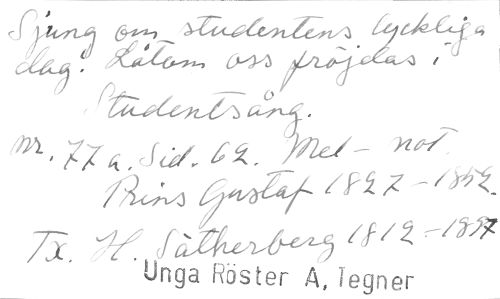 Sjung om studentens lyckliga
dag. Låtom oss fröjdas i
Studentsång.
nr. 77 a. Sid. 62. Mel - not.
Prins Gustaf 1827-1852.
Tx. H. Sätherberg 1812-1897
Unga Röster A, Tegner